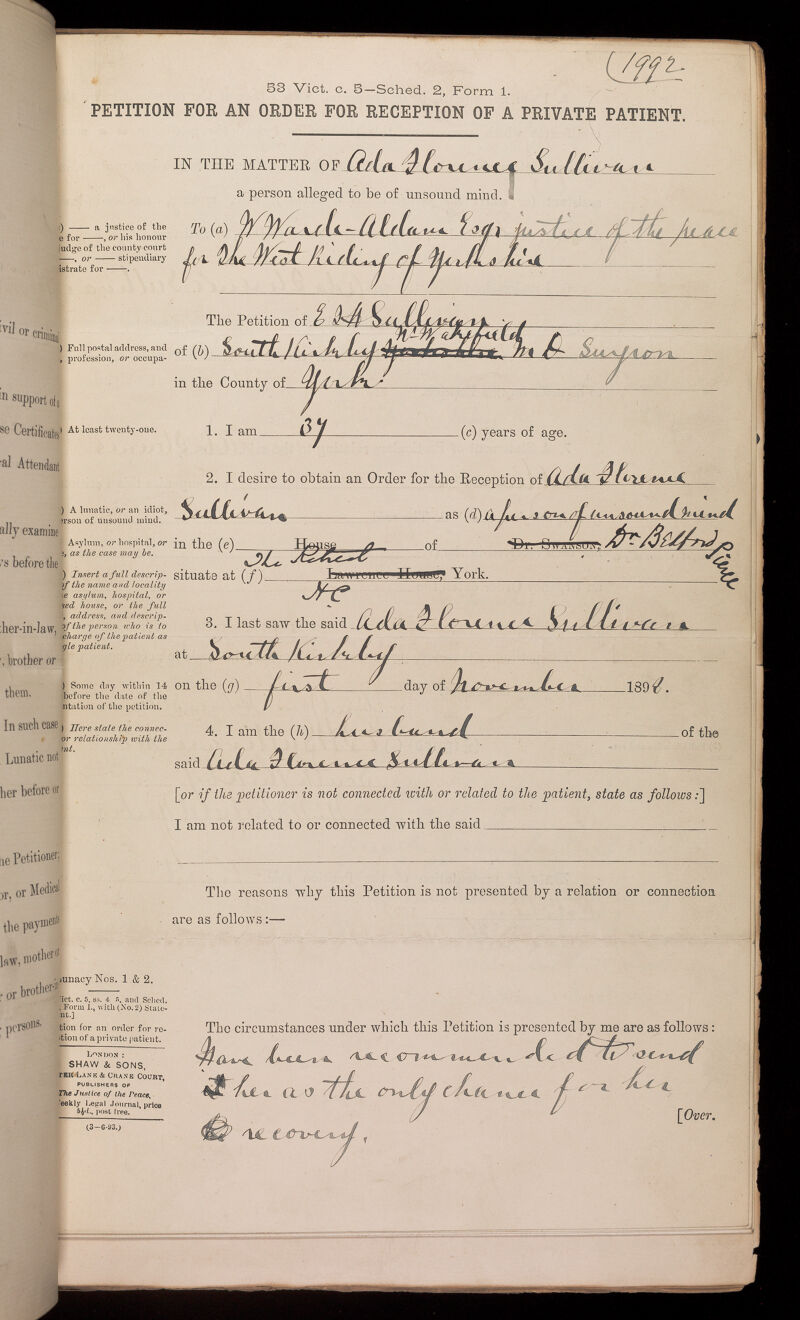 1992
53 Vict. c. 5—Sched. 2, Form 1.
PETITION FOR AN ORDER FOR RECEPTION OF A PRIVATE PATIENT.
IN THE MATTER OF Ada Florence Sullivan
a person alleged to be of unsound mind.
) —— a justice of the
e for ——, or his honour
udge of the county court
——, or —— stipendiary
istrate for ——.
To (a) W Warde-Aldam Esqr justice of the peace
for The West Riding of Yorkshire
The Petition of E S H Sullivan
Nr Wakefield
) Full postal address, and
, profession, or occupa-
of (b) South Kirkby Yorkshire M D Surgeon
in the County of York
) At least twenty-one.
1. I am 37 (c) years of age.
2. I desire to obtain an Order for the Reception of Ada Florence
) A lunatic, or an idiot,
rson of unsound mind.
Sullivan as (d) a person of unsound mind
Asylum, or hospital, or
, as the case may be.
in the (e) House of Dr. Swanson, Dr Bedford Pierce
The Retreat
) Insert a full descrip-
of the name and locality
e asylum, hospital, or
sed house, or the full
, address, and descrip-
of the person who is to
charge of the patient as
gle patient.
situate at (f) Lawrence House, York.
3. I last saw the said Ada Florence Sullivan
at South Kirkby
) Some day within 14
before the date of the
ntation of the petition.
on the (g) first day of November 1898.
) Here state the connec-
or relationship with the
nt.
4. I am the (h) husband of the
said Ada Florence Sullivan
[or if the petitioner is not connected with or related to the patient, state as follows:]
I am not related to or connected with the said
The reasons why this Petition is not presented by a relation or connection
are as follows:—
unacy Nos. 1 & 2.
Vict. c. 5, ss. 4 5, and Sched.
Form 1., with (No. 2) State-
nt.]
tion for an order for re-
tion of a private patient.
London:
SHAW & SONS,
Lane & Crane Court,
PUBLISHERS OF
The Justice of the Peace,
eekly Legal Journal, price
5½d., post free.
(3—6-93.)
The circumstances under which this Petition is presented by me are as follows:
Have been recommended to send
her as the only chance for her
recovery.
[Over.
ivil or crimin
n support of
se Certificate
al Attendant
ally examine
's before the
her-in-law,
, brother or
them.
In such case
Lunatic not
her before or
ne Petitioner
or, or Medical
the payment
law, mother or
or brother-
persons.